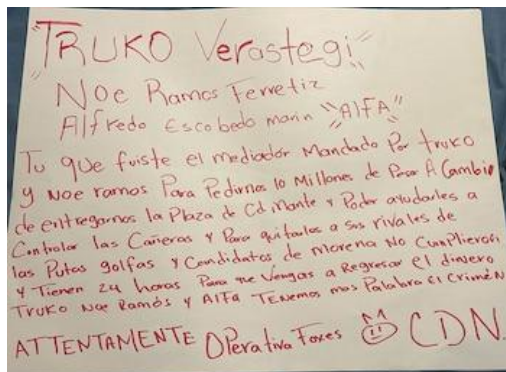 "TRUKO Verastegi"
Noe Ramos Ferretiz
Alfredo Escobedo marin "AlFA"
Tu que fuiste el mediador Mandado Por truko
y Noe ramos Para Pedirnos 10 Millones de Pesos A Cambio
de entregarnos la Plaza de Cd, Mante y Poder ayudarles a
Controlar las Cañeras y Para quitarles a sus rivales de
las Putas golfas y Candidatos de morena No Cumplieron
y Tienen 24 horas Para que Vengas a Regresar el dinero
Truko Noe Ramos y AlFa TEnemos mas Palabra El CrimEN
ATTENTAMENTE OPerativa Foxes CDN.